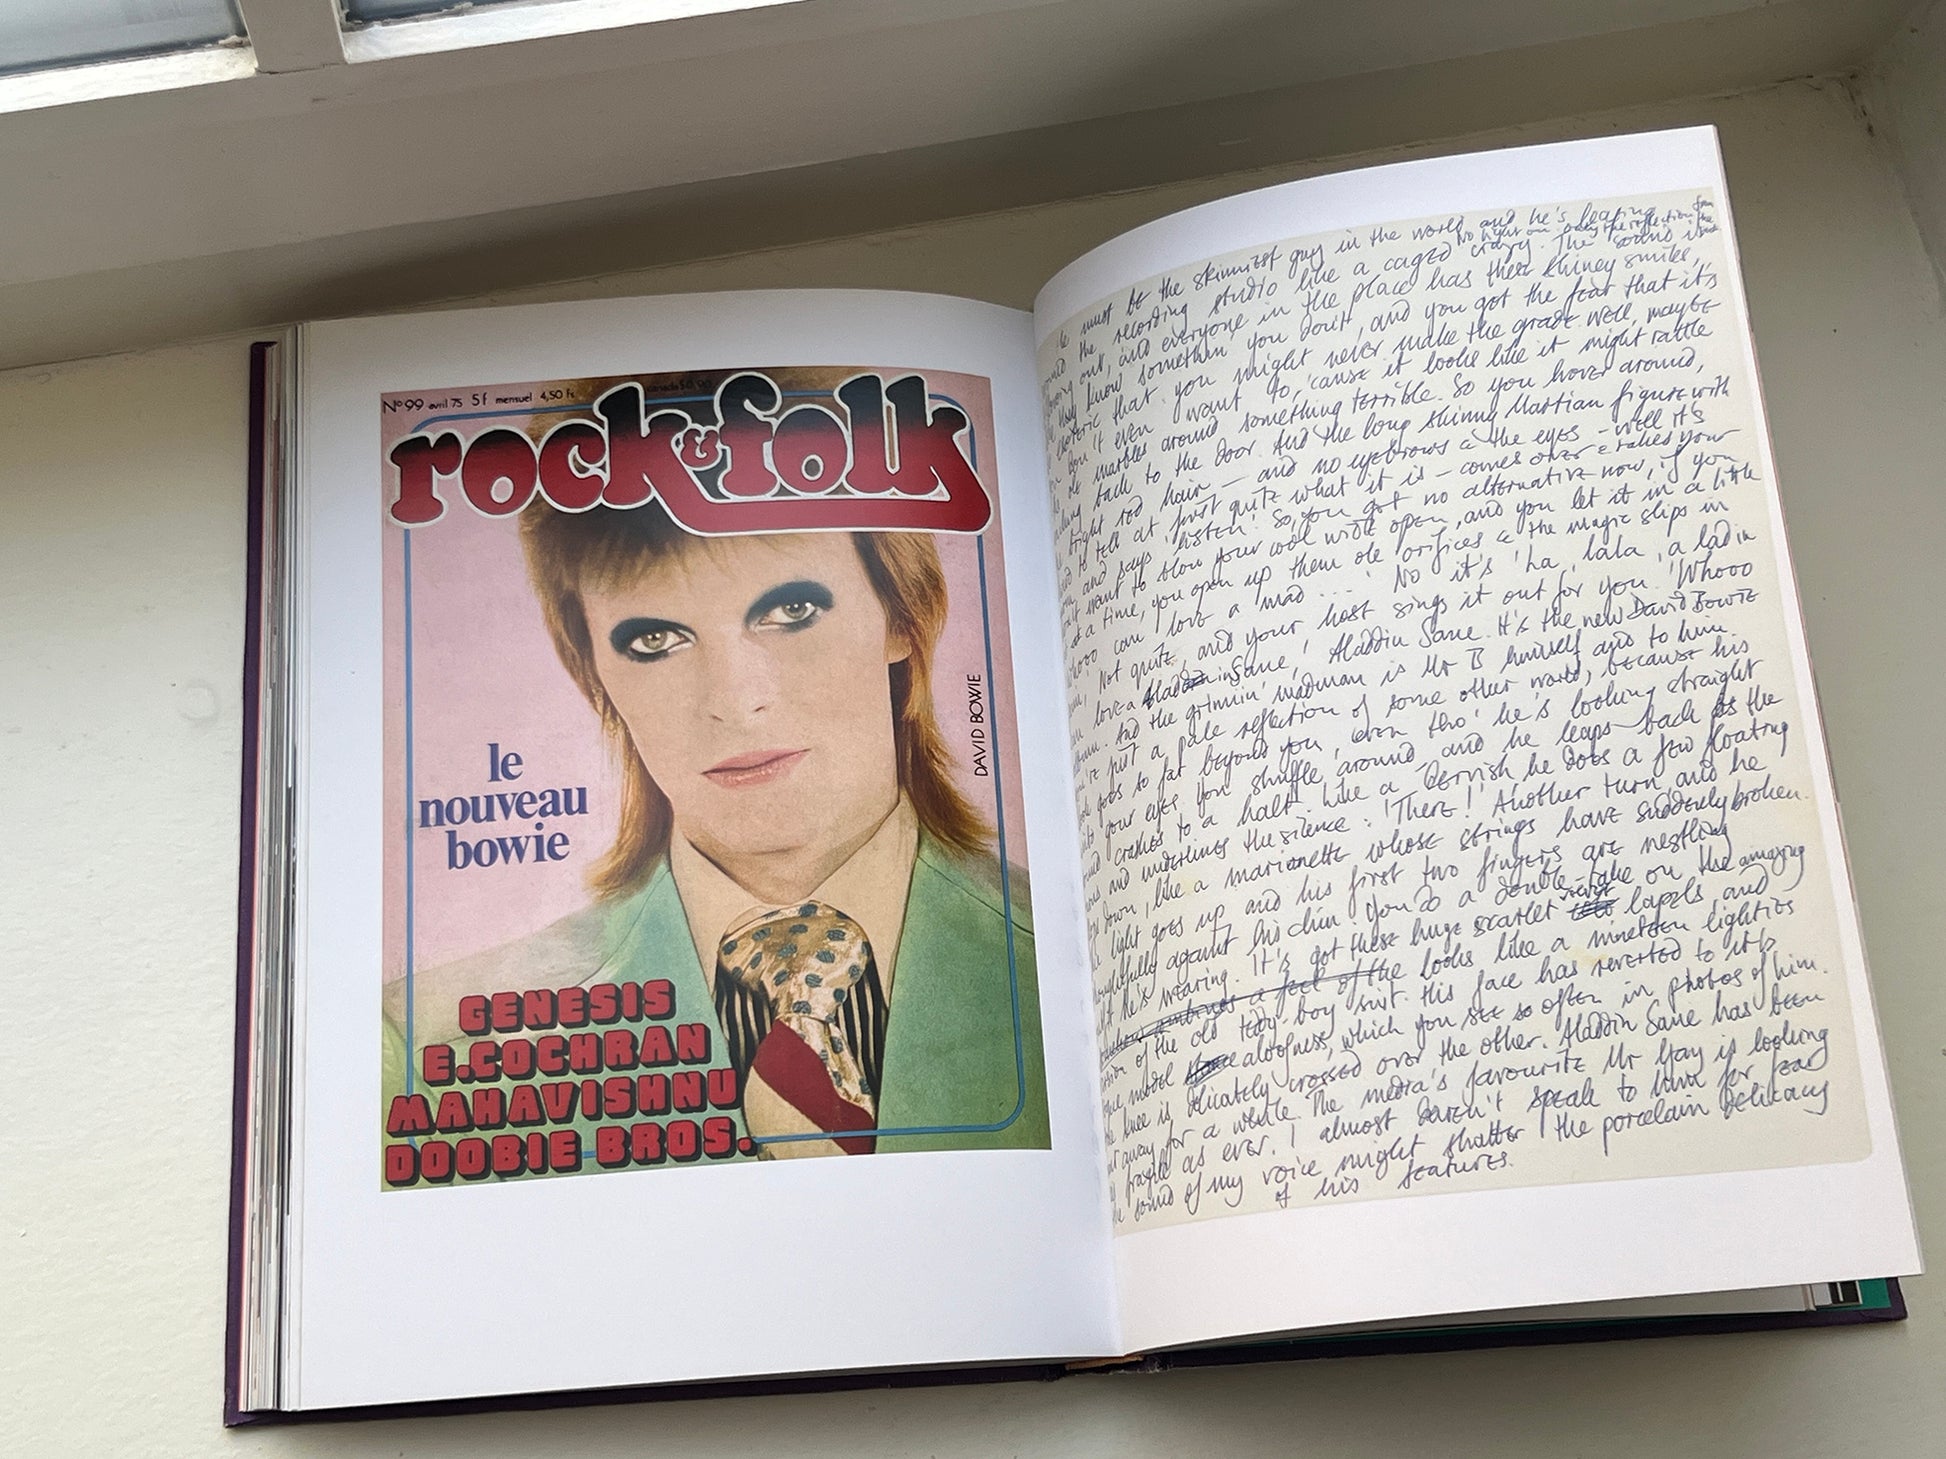 Nº 99 avril 75 5f mensuel 4,50 Fs canada $ 0,90
rock & folk
DAVID BOWIE
le
nouveau
bowie
GENESIS
E.COCHRAN
MAHAVISHNU
DOOBIE BROS.
must be the skinniest guy in the world and he's
No light on only the reflection from the
the recording studio like a caged crazy. The sound is
out, and everyone in the place has these shiney smiles,
they know somethin' you don't, and you got the fear that it's
esoteric that you might never make the grade well, maybe
don't even want to, 'cause it looks like it might rattle
ole marbles around something terrible. So you hover around,
back to the door. And the long skinny Martian figure with
bright red hair — and no eyebrows a' the eyes – well it's
to tell at first quite what it is – comes over & takes your
and says 'listen'. So, you got no alternative now, if you
want to blow your cool wide open, and you let it in a little
at a time, you open up them ole orifices & the magic slips in
whooo can love a mad ... ' No it's 'La, lala, a lad in
Not quite, and your host sings it out for you. 'Whooo
love a lad in Sane, ' Aladdin Sane. It's the new David Bowie
And the grinnin' madman is Mr B himself and to him
you're just a pale reflection of some other world, because his
goes to far beyond you, even tho' he's looking straight
your eyes. You shuffle around and he leaps back as the
crashes to a halt. Like a Dervish he does a few floating
and underlines the silence: 'There!' Another turn and he
down, like a marionette whose strings have suddenly broken.
light goes up and his first two fingers are nestling
thoughtfully against his chin. You do a double-take on the amazing
he's wearing. It's got these huge scarlet revers lapels, and
a feel of the looks like a nineteen eighties
of the old tedy-boy suit. His face has reverted to it's
model aloofness, which you see so often in photos of him.
knee is delicately crossed over the other. Aladdin Sane has been
put away for a while. The media's favourite Mr Gay is looking
fragile as ever. I almost daren't speak to him for fear
the sound of my voice might shatter the porcelain delicacy
of his features.